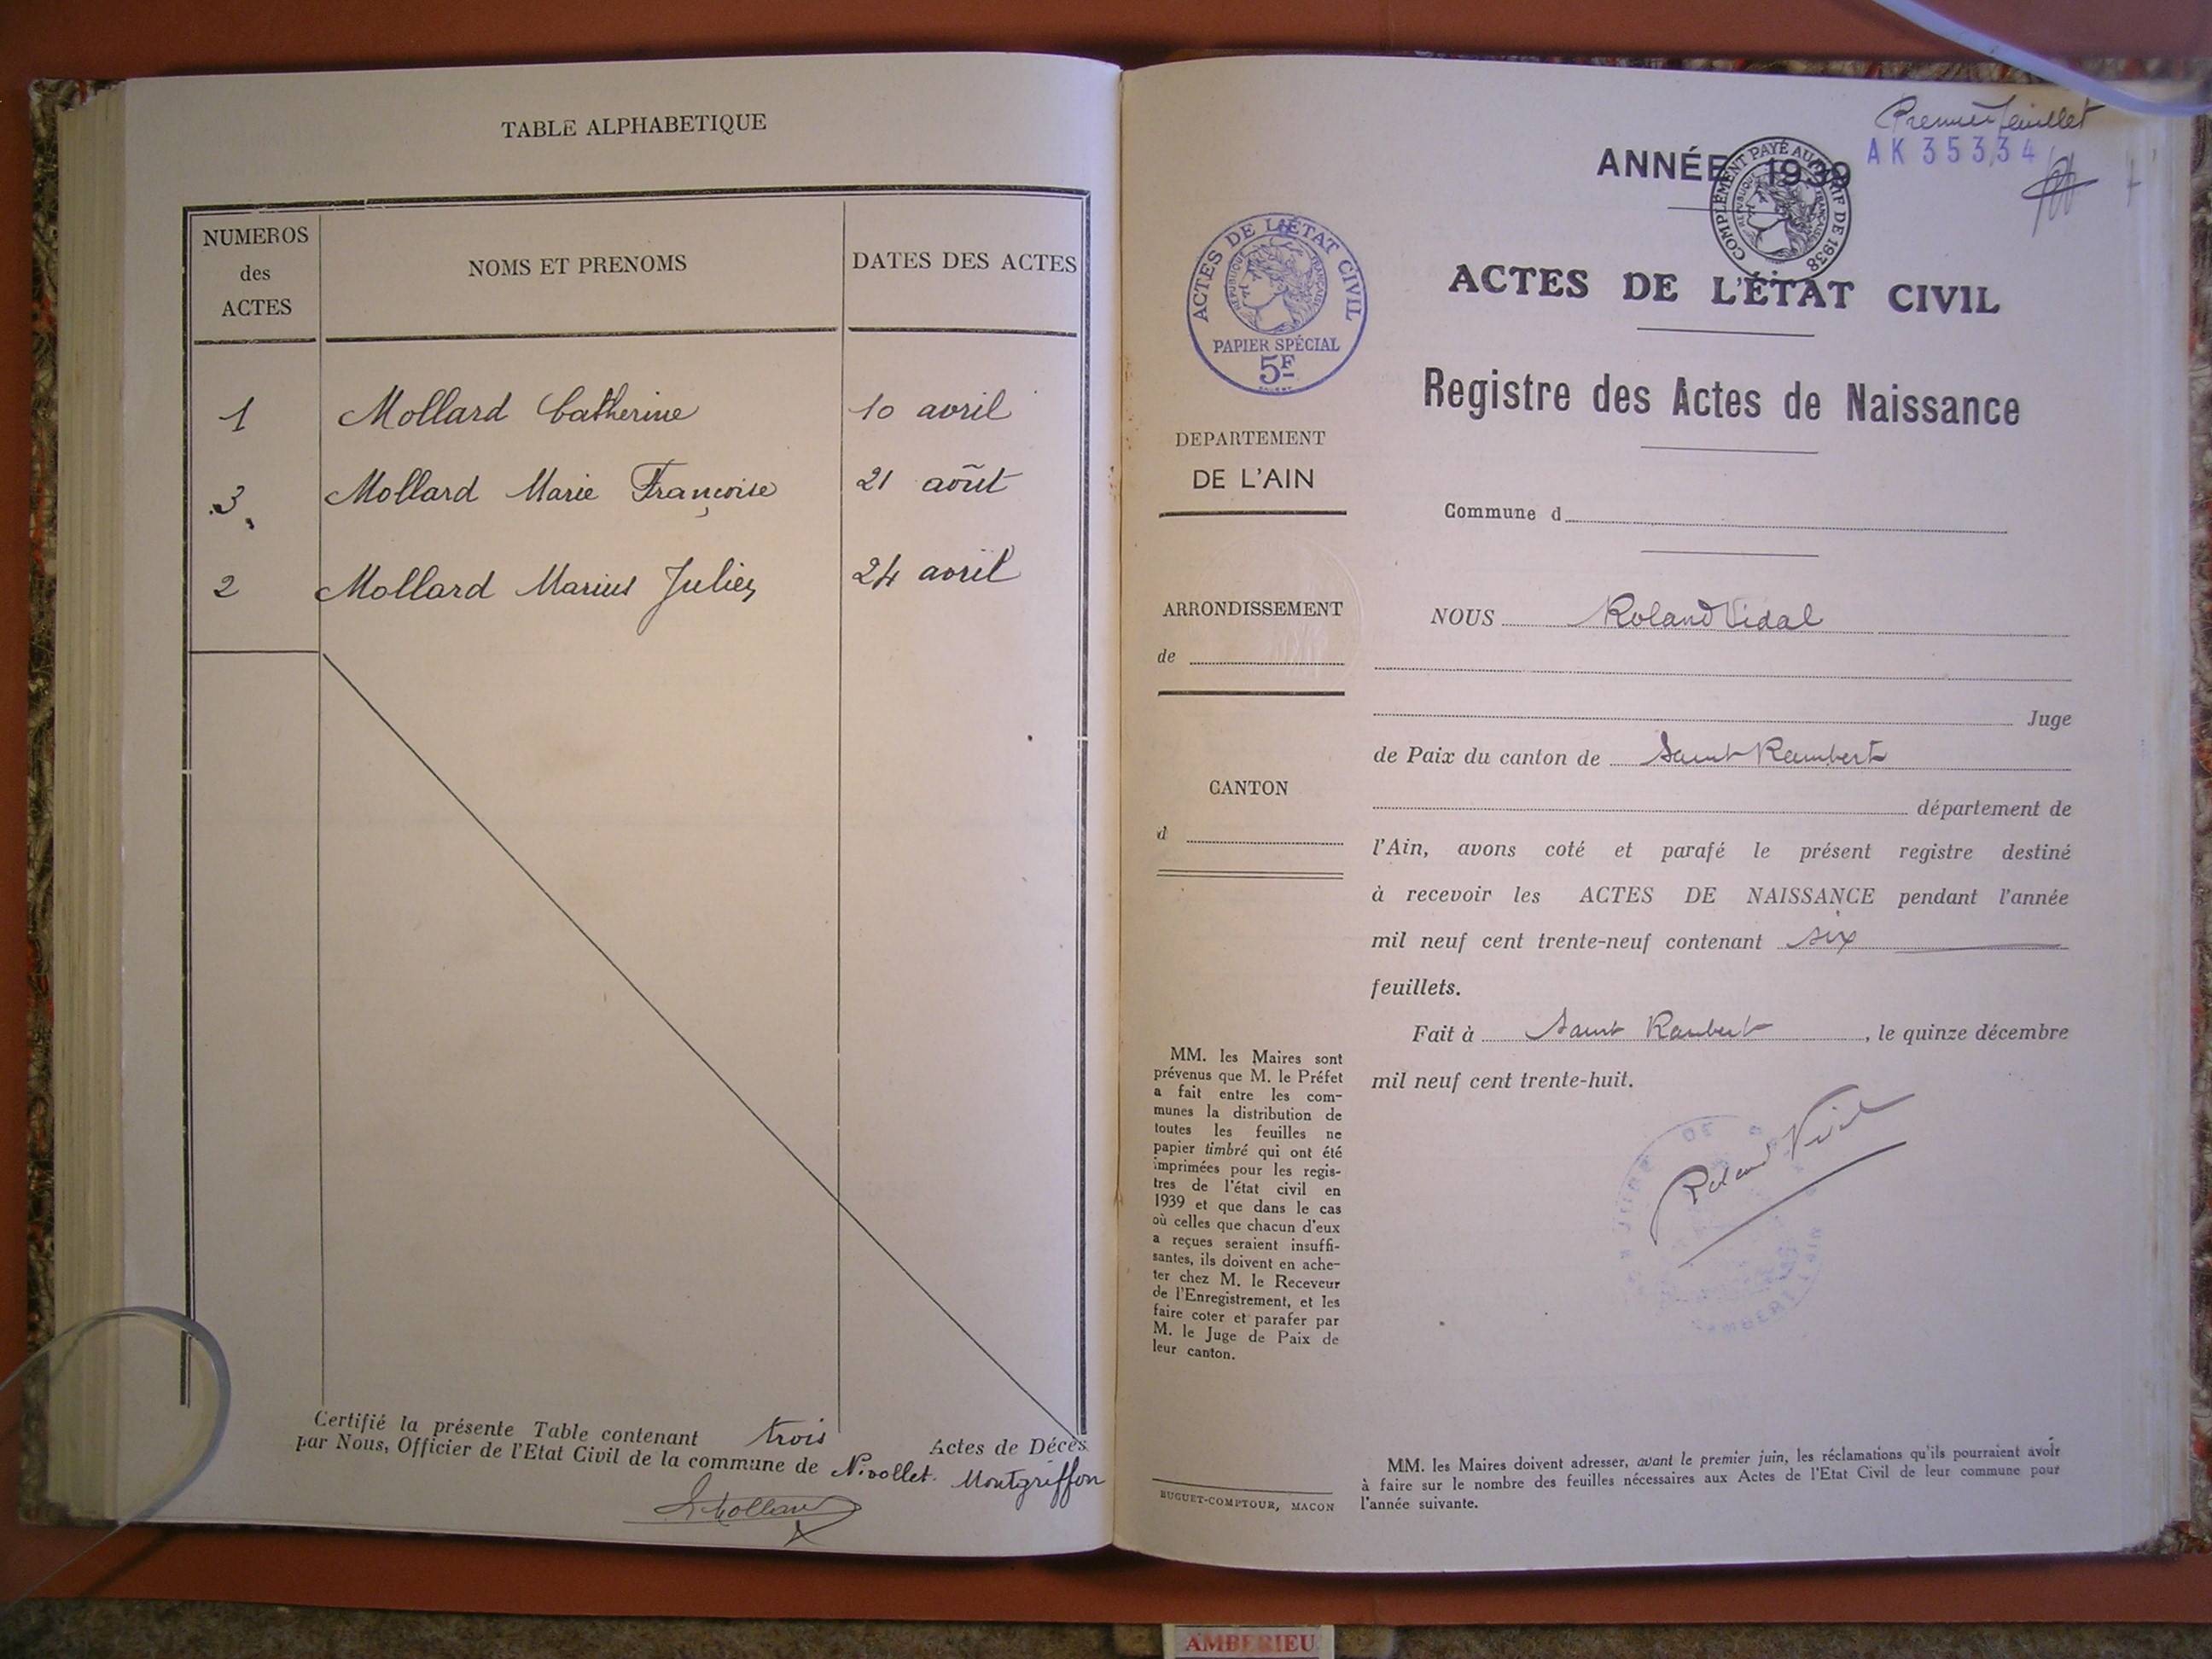 TABLE ALPHABETIQUE
NUMEROS
des
ACTES
NOMS ET PRENOMS
DATES DES ACTES
1 Mollard Catherine 10 avril
3 Mollard Marie Françoise 21 août
2 Mollard Marius Julien 24 avril
Certifié la présente Table contenant trois Actes de Décès
par Nous, Officier de l'Etat Civil de la commune de Nivollet Montgriffon
Mollard
Premier feuillet
AK 35334
ANNÉE 1939
COMPLÉMENT PAYÉ AU TARIF DE 1938
RÉPUBLIQUE FRANÇAISE
ACTES DE L'ÉTAT CIVIL
RÉPUBLIQUE FRANÇAISE
PAPIER SPÉCIAL
5F
ACTES DE L'ÉTAT CIVIL
Registre des Actes de Naissance
DEPARTEMENT
DE L'AIN
ARRONDISSEMENT
de
CANTON
d
MM. les Maires sont
prévenus que M. le Préfet
a fait entre les com-
munes la distribution de
toutes les feuilles ne
papier timbré qui ont été
imprimées pour les regis-
tres de l'état civil en
1939 et que dans le cas
où celles que chacun d'eux
a reçues seraient insuffi-
santes, ils doivent en ache-
ter chez M. le Receveur
de l'Enregistrement, et les
faire coter et parafer par
M. le Juge de Paix de
leur canton.
BUGUET-COMPTOUR, MACON
Commune d
NOUS Roland Vidal
Juge
de Paix du canton de Saint Rambert
département de
l'Ain, avons coté et parafé le présent registre destiné
à recevoir les ACTES DE NAISSANCE pendant l'année
mil neuf cent trente-neuf contenant six
feuillets.
Fait à Saint Rambert, le quinze décembre
mil neuf cent trente-huit.
Roland Vidal
MM. les Maires doivent adresser, avant le premier juin, les réclamations qu'ils pourraient avoir
à faire sur le nombre des feuilles nécessaires aux Actes de l'Etat Civil de leur commune pour
l'année suivante.
AMBERIEU